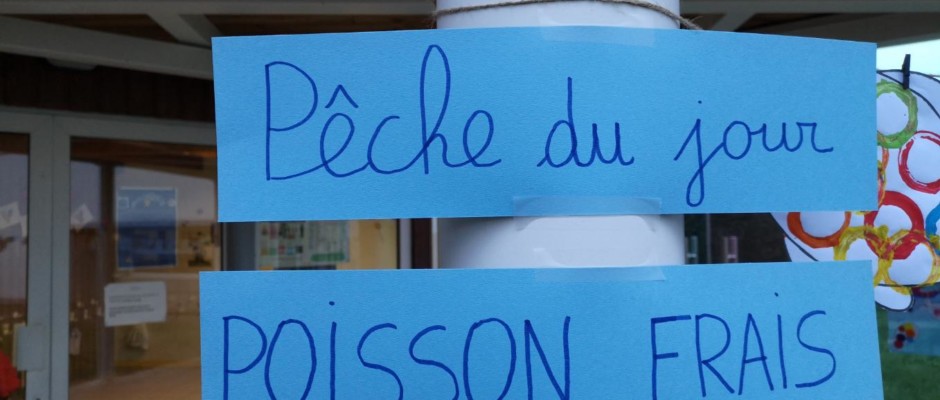 Pêche du jour
POiSSON FRAiS